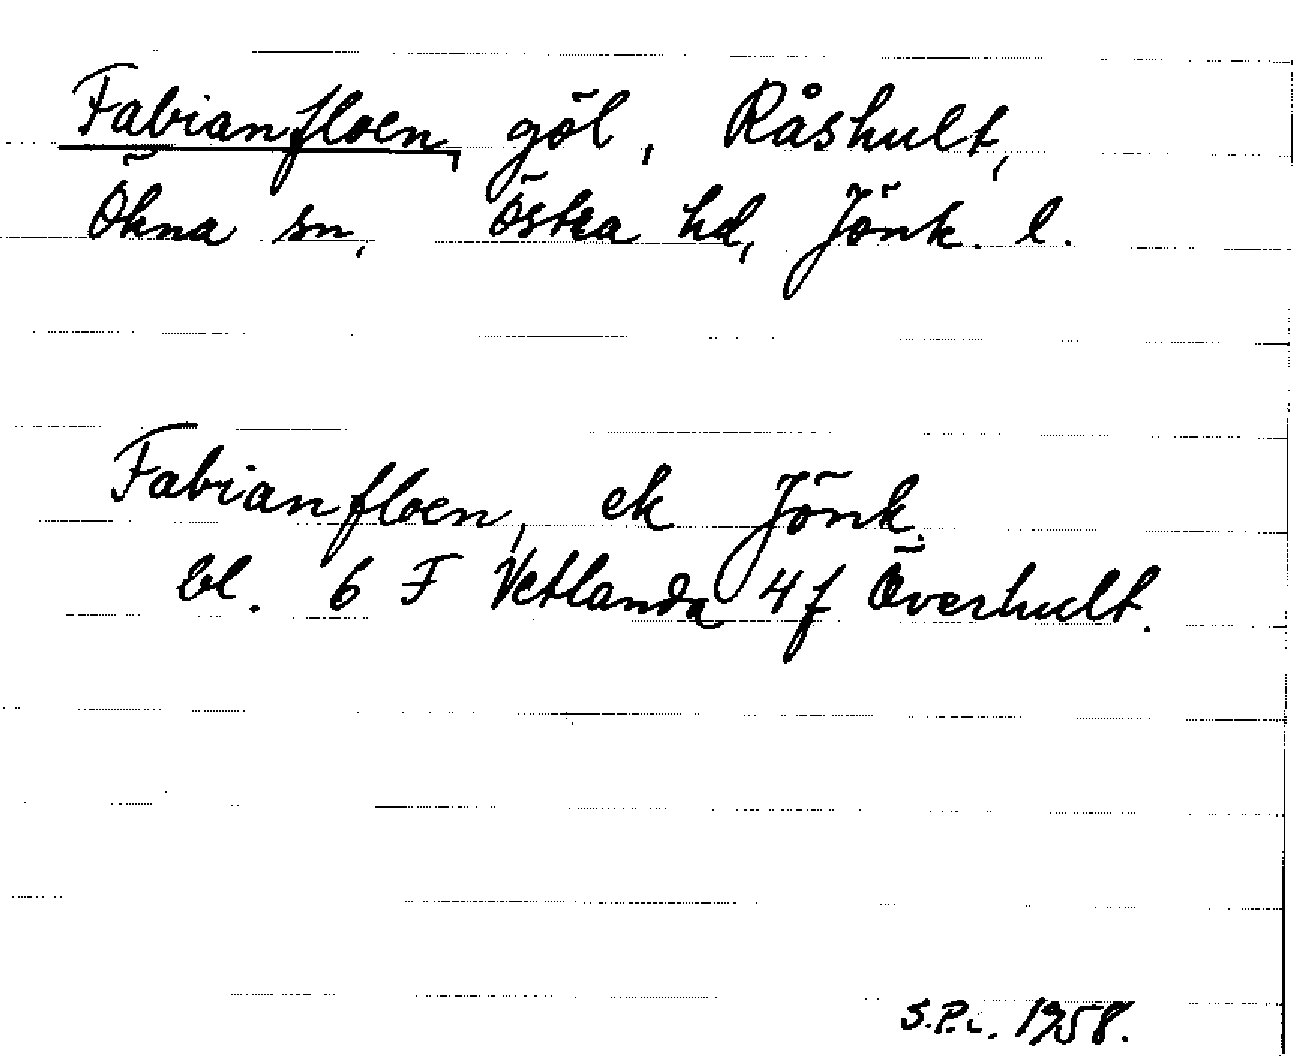 Fabianfloen, göl, Råshult,
Ökna sn, Östra hd, Jönk. l.
Fabianfloen, ek Jönk.
bl. 6 F Vetlanda 4 f Överhult.
S.P.L. 1958.